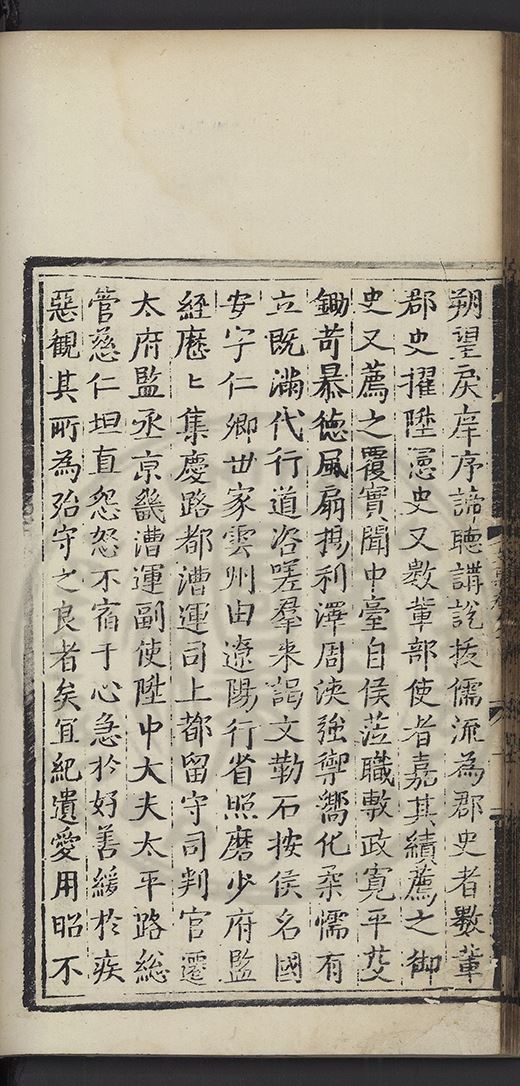 朔望戾庠序諦聽講說拔儒流為郡史者數輩
郡史擢陞憲史又數輩部使者嘉其績薦之御
史又薦之覆實聞中臺自侯蒞職敷政寬平芟
鋤苛暴德風扇揚利澤周浹強禦嚮化柔懦有
立既滿代行道咨嗟羣来謁文勒石按侯名國
安字仁卿世家雲州由遼陽行省照磨少府監
經歷〻集慶路都漕運司上都留守司判官遷
太府監丞京畿漕運副使陞中大夫太平路緫
管慈仁坦直怨怒不宿于心急於好善緩於疾
惡觀其所為殆守之良者矣宜紀遺愛用昭不